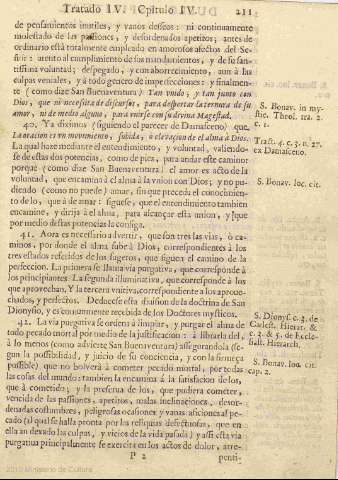 Tratado IV. Cpitulo IV. 211
de pensamientos inutiles, y vanos deseos: ni continuamente
molestado de las passiones, y desordenados apetitos; antes de
ordinario està totalmente empleado en amorosos afectos del Se-
ñor: atento al cumplimiento de sus mandamientos, y de su san-
tissima voluntad; despegado, y con aborrecimiento, aun à las
culpas veniales, y à todo genero de imperfecciones; y finalmen-
te (como dize San Buenaventura) Tan vnido, y tan junto con
Dios, que ni necessita de discursos, para despertar la ternura de su
amor, ni de medio alguno, para vnirse con su divina Magestad.
S. Bonav. in my-
stic. Theol. tra. 2.
c. 1.
40. Ya diximos (siguiendo el parecer de Damasceno) que
La oracion es vn movimiento, subida, ò elevacion de el alma à Dios.
La qual haze mediante el entendimiento, y voluntad, valiendo-
se de estas dos potencias, como de pies, para andar este caminò
porque (como dize San Buenaventura) el amor es acto de la
voluntad, que encamina à el alma à la vnion con Dios; y no pu-
diendo (como no puede) amar, sin que preceda el conocimien-
to de lo, que à de amar: siguese, que el entendimiento tambien
encamine, y dirija à el alma, para alcançar esta vnion, y que
por medio destas potencias la consiga.
Tract. 4. c. 3. n. 27.
ex Damasceno.
S. Bonav. loc. cit.
41. Aora es necessario advertir, que son tres las vias, ò ca-
minos, por donde el alma sube à Dios, correspondientes à los
tres estados referidos de los sugetos, que siguen el camino de la
perfeccion. La primera se llama via purgativa, que corresponde à
los principiantes. La segunda illuminativa, que corresponde à los
que aprovechan. Y la tercera vnitiva, correspondiente à los aprove-
chados, y perfectos. Deducese esta division de la doctrina de San
Dionysio, y es comunmente recibida de los Doctores mysticos.
S. Dionys. c. 3. de
Cœlest. Hierar. &
c. 2. & 5. de Eccle-
siast. Hierarch.
42. La via purgativa se ordena à limpiar, y purgar el alma de
todo pecado mortal por medio de la justificacion: à librarla del,
à lo menos (como advierte San Buenaventura) assegurandola (se-
gun la possibilidad, y juicio de su conciencia, y con la firmeça
possible) que no bolverà à cometer pecado mortal, por todas
las cosas del mundo: tambien la encamina à la satisfacion de los,
que à cometido; y la preserva de los, que pudiera cometer,
vencida de las passiones, apetitos, malas inclinaciones, desor-
denadas costumbres, peligrosas ocasiones y vanas aficiones al pe-
cado (al qual se halla pronta por las reliquias defectuosas, que en
ella an dexado las culpas, y vicios de la vida pasada) y assi esta via
purgativa principalmente se exercita en los actos de dolor, arre-
S. Bonav. loc. cit.
cap. 2.
P 2 penti-
2010 Ministerio de Cultura